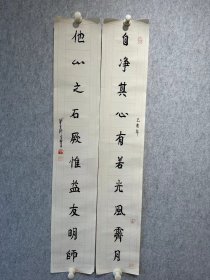 自净其心有若光風霽月
他山之石厥惟益友明師